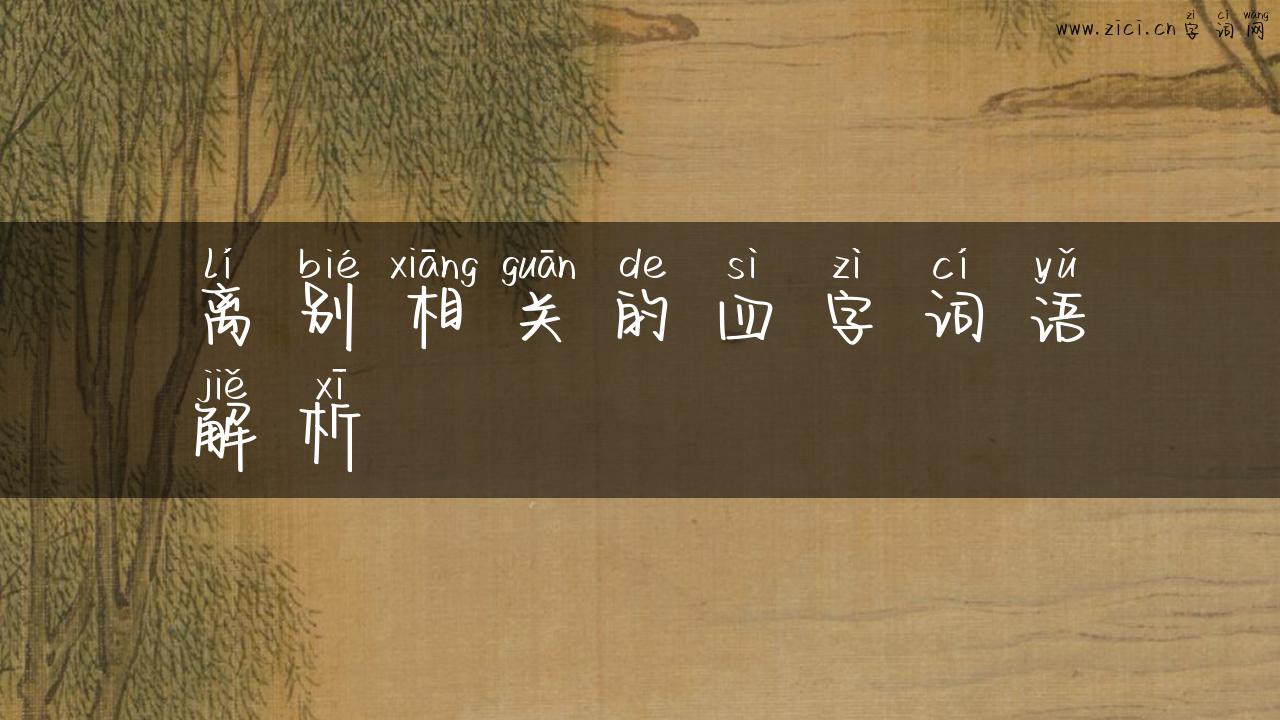 zì cí wǎng
www.zici.cn 字词网
lí bié xiāng guān de sì zì cí yǔ
离别相关的四字词语
jiě xī
解析